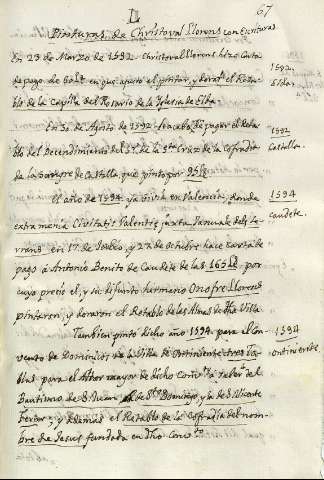 67
L
Pinturas de Christoval Llorens con Escrituras
En 23 de Marzo de 1592. Christoval Llorens hizo Carta
de pago de 60 L. en que ajustó el pintar, y dorar el Reta-
blo de la Capilla del Rosario de la Iglesia de Elda
1592.
Elda.
En 30 de Agosto de 1592. se acabó de pagar el Reta
blo del Decendimiento del Sr. de la Sta. Cruz de la Cofradia
de la Sangre de Castalla que pintó por 95 L.
1592
Castalla.
El año de 1594 ya vivia en Valencia, donde
extra menia Civitatis Valentiæ juxta Januae dels Se-
rrans en 17 de Junio, y 27 de Octubre hace Carta de
pago á Antonio Benito de Caudete de las 165 L. por
cuyo precio el, y su difunto hermano Onofre Llorens
pintaron, y doraron el Retablo de las Almas de dha Villa
1594
Caudete.
Tambien pintó dicho año 1594. para el Con
vento de Dominicos de la Villa de Ontiniente tres Ta-
blas para el Altar mayor de dicho Convto. a saber del
Bautismo de S. Juan de Sto. Domingo, y la de S. Vicente
Ferrer, y ademas el Retablo de la Cofradia del nom-
bre de Jesus fundada en dho Convto.
1594
Ontiniente.